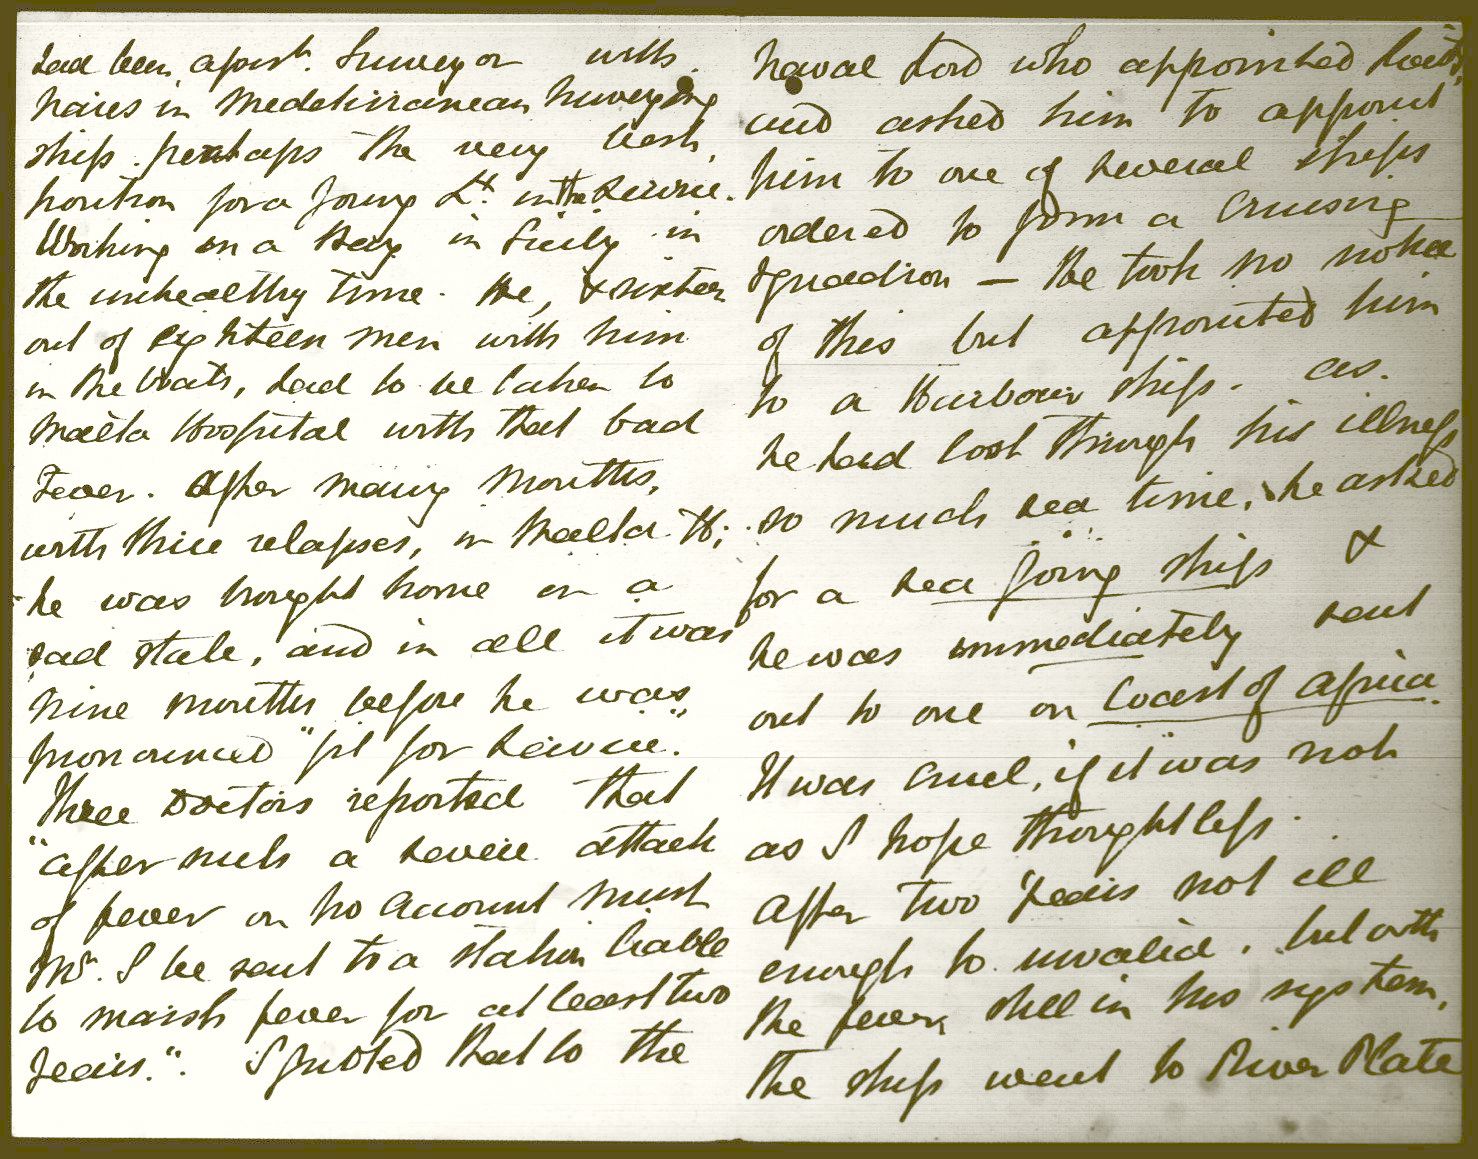 had been, apart. Surveyor with
Nares in Mediterranean Surveying
ship. perhaps the very best,
position for a young Lt. in the Service.
Working in a Bay in Sicily in
the unhealthy time. He, & sixteen
out of eighteen men with him
in the boats, had to be taken to
Malta Hospital with that bad
Fever. After many months,
with thrice relapses, in Malta H;
he was brought home in a
sad state, and in all it was
nine months before he was
pronounced "fit for Service".
Three Doctors reported that
"after such a severe attack
of fever on no account must
Mr. S be sent to a station liable
to marsh fever for at least two
years.". I quoted that to the
Naval Lord who appointed
and asked him to appoint
him to one of several ships
ordered to form a Cruising
Squadron — He took no notice
of this but appointed him
to a Harbour ship. as.
he had lost through his illness
so much sea time, he asked
for a sea going ship &
he was immediately sent
out to one on Coast of Africa.
It was cruel, if it was not
as I hope thoughtless.
After two years not ill
enough to invalid, but with
the fever, still in his system,
the ship went to River Plate